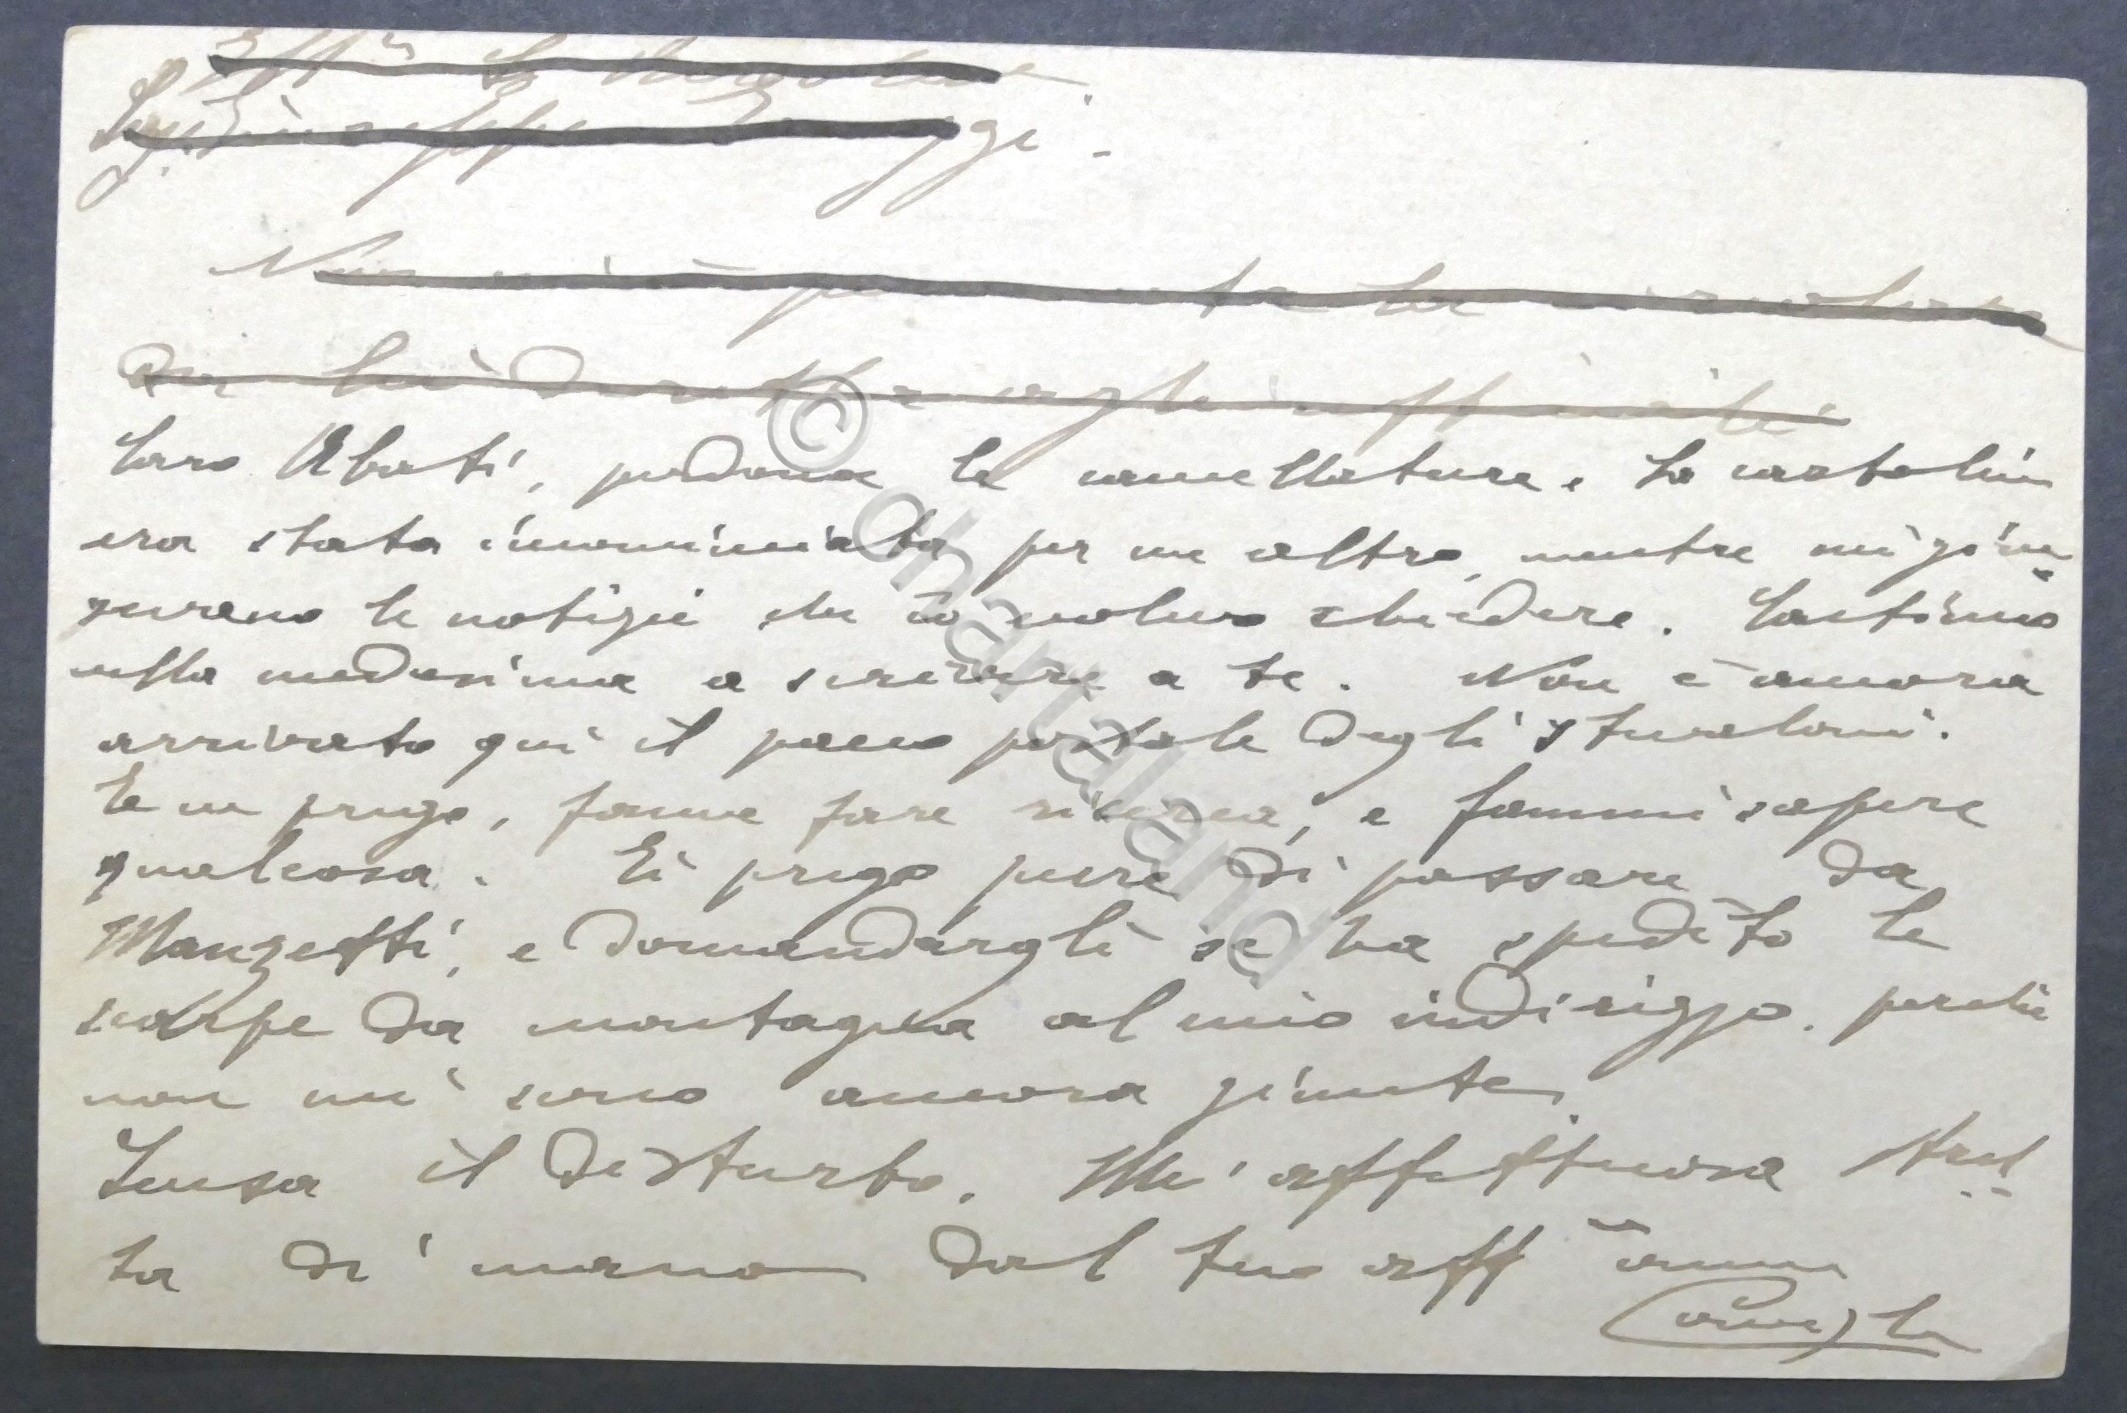 Non mi è
Caro Abati, perdona le cancellature. La cartolina
era stata incominciata per un altro, mentre mi giun-
gevano le notizie che io volevo chiedere. Continuo
sulla medesima a scrivere a te. Non è ancora
arrivato qui il pacco postale degli
Te ne prego, fanne fare ricerca, e fammi sapere
qualcosa. Ti prego pure di passare da
Manzetti, e domandargli se ha spedito le
scarpe da montagna al mio indirizzo. perché
non mi sono ancora giunte.
Scusa il disturbo. Un' affettuosa stret-
ta di mano dal tuo aff mo
© chartaland